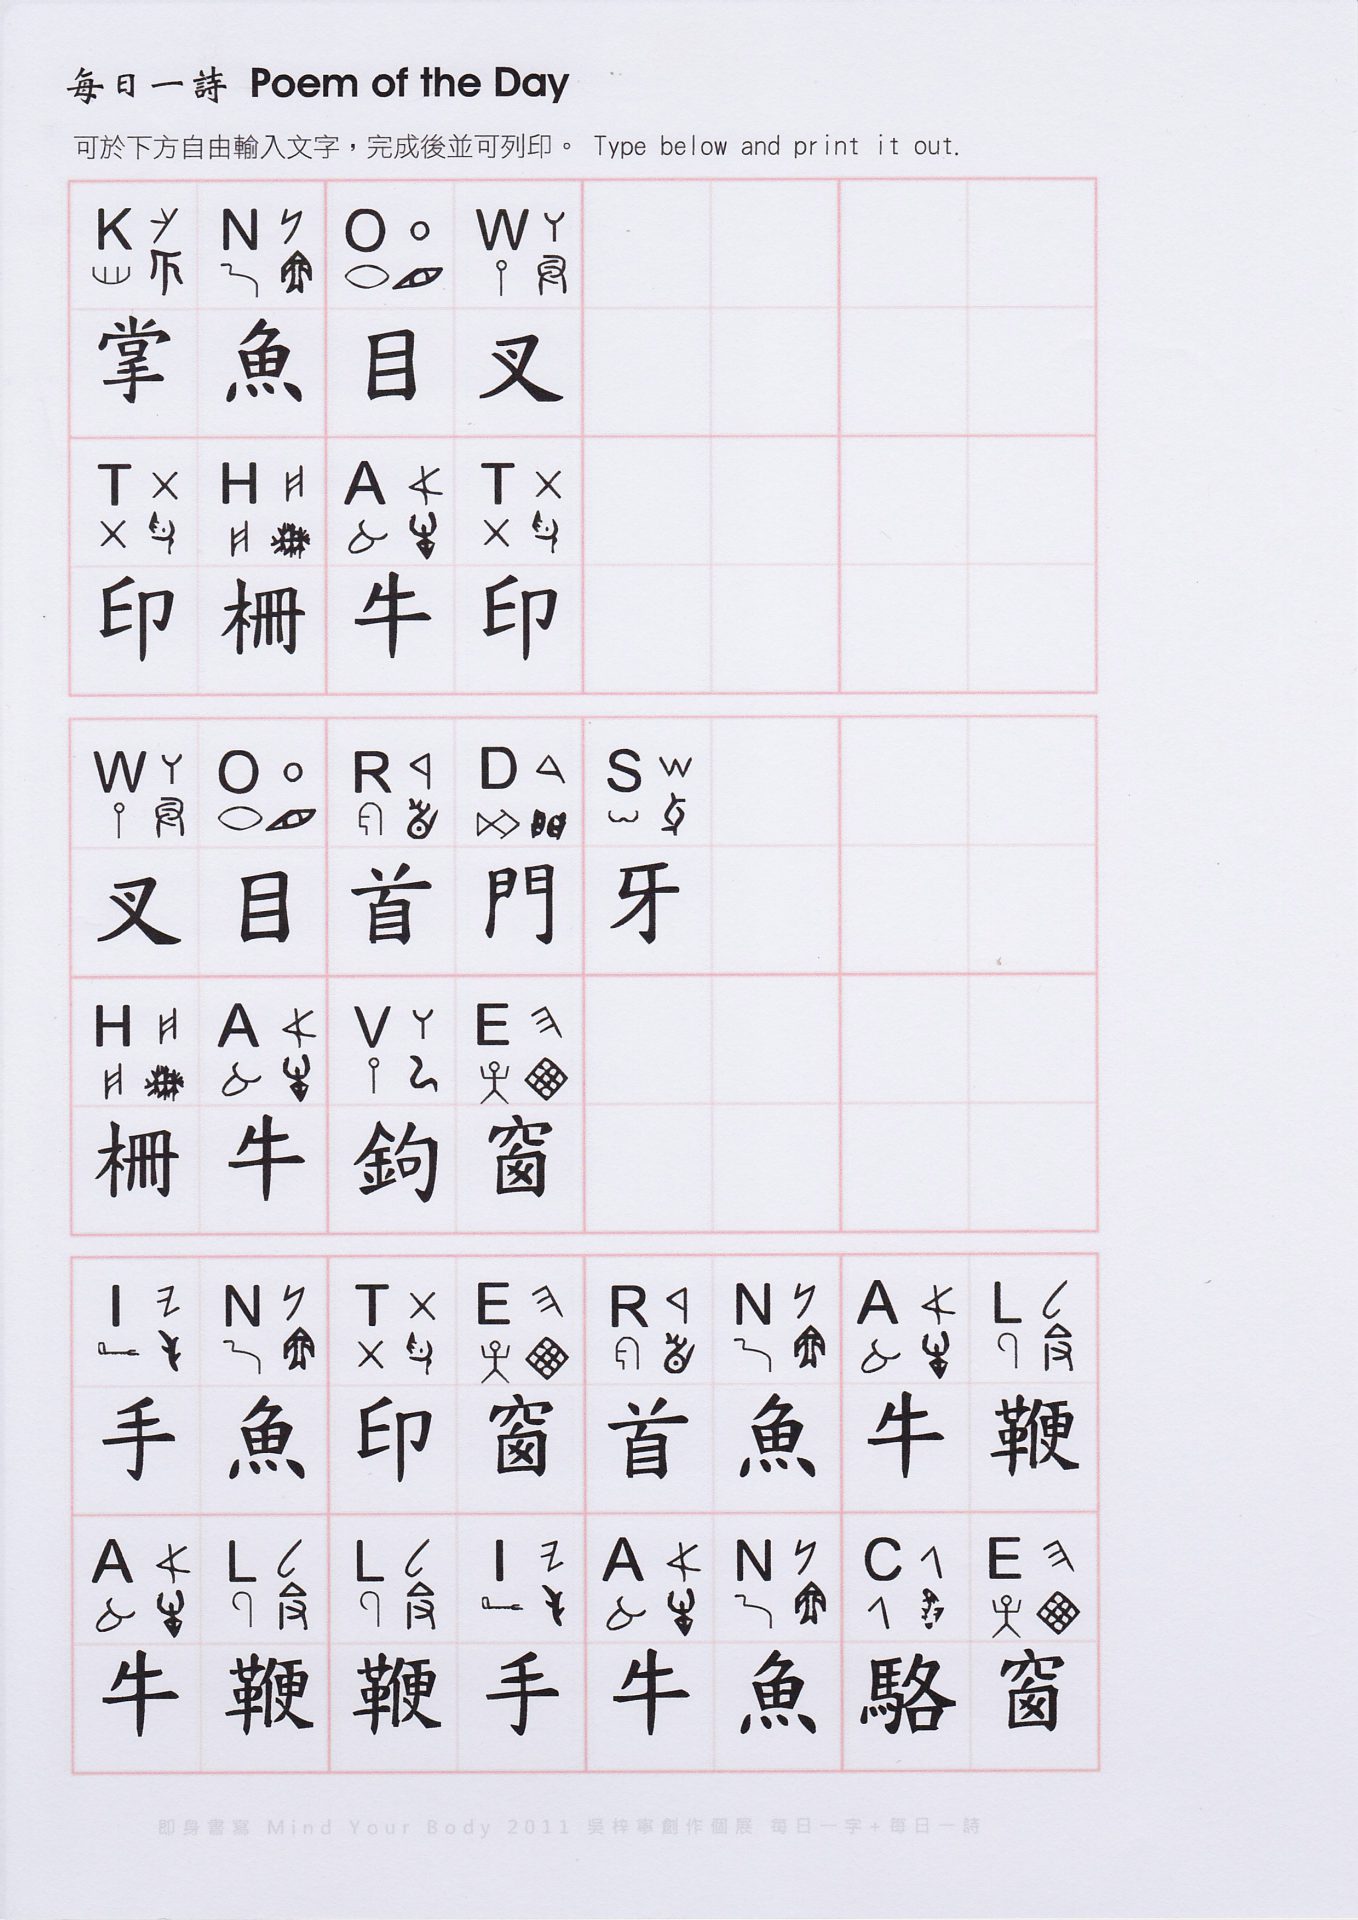 每日一詩 Poem of the Day
可於下方自由輸入文字，完成後並可列印。 Type below and print it out.
K N O W
掌 魚 目 叉
T H A T
印 柵 牛 印
W O R D S
叉 目 首 門 牙
H A V E
柵 牛 鉤 窗
I N T E R N A L
手 魚 印 窗 首 魚 牛 鞭
A L L I A N C E
牛 鞭 鞭 手 牛 魚 駱 窗
即身書寫 Mind Your Body 2011 吳梓寧創作個展 每日一字+每日一詩